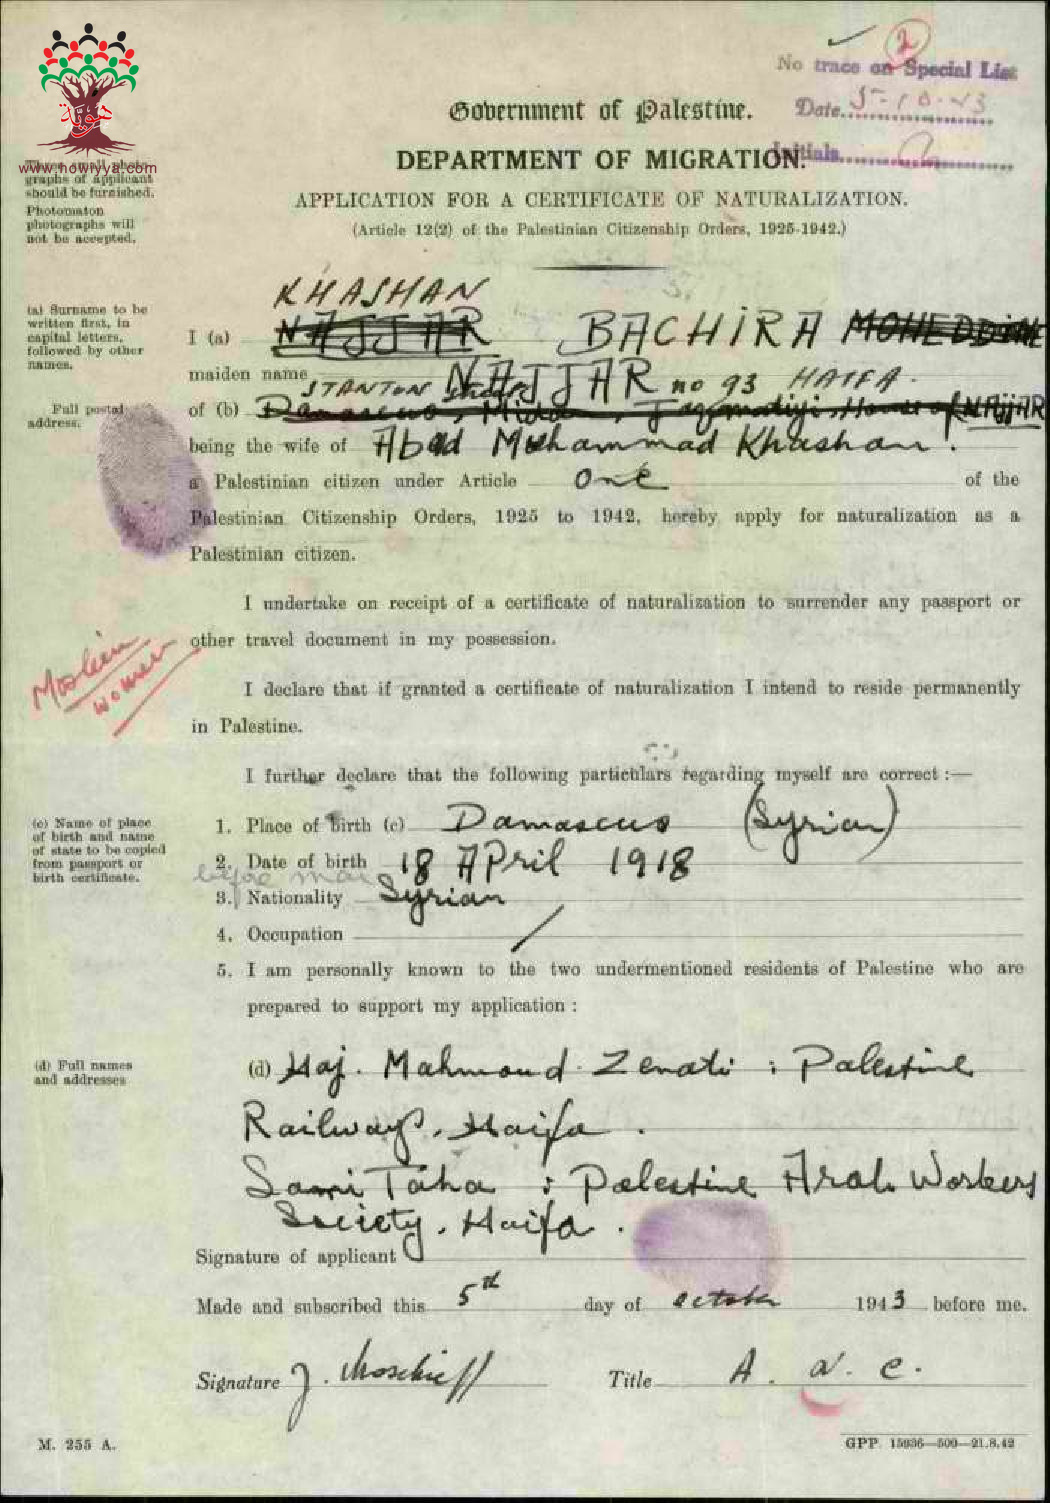 هوية
www.howiyya.com
2
No trace on Special List
Date 5-10-43
Initials
Government of Palestine.
DEPARTMENT OF MIGRATION.
APPLICATION FOR A CERTIFICATE OF NATURALIZATION.
(Article 12(2) of the Palestinian Citizenship Orders, 1925-1942.)
Three small photo-
graphs of applicant
should be furnished.
Photomaton
photographs will
not be accepted.
(a) Surname to be
written first, in
capital letters,
followed by other
names.
KHASHAN
I (a) NAJJAR BACHIRA MOHEDDINE
maiden name NAJJAR
STANTON Street no 93 HAIFA.
Full postal
address.
of (b) Damascus, House of NAJJAR
being the wife of Abed Mohammad Khashan.
a Palestinian citizen under Article One of the
Palestinian Citizenship Orders, 1925 to 1942, hereby apply for naturalization as a
Palestinian citizen.
I undertake on receipt of a certificate of naturalization to surrender any passport or
other travel document in my possession.
Moslem
women
I declare that if granted a certificate of naturalization I intend to reside permanently
in Palestine.
I further declare that the following particulars regarding myself are correct :—
(c) Name of place
of birth and name
of state to be copied
from passport or
birth certificate.
1. Place of birth (c) Damascus (Syrian)
2. Date of birth 18 April 1918
before mar
3. Nationality Syrian
4. Occupation /
5. I am personally known to the two undermentioned residents of Palestine who are
prepared to support my application :
(d) Full names
and addresses
(d) Haj. Mahmoud Zenati : Palestine
Railways, Haifa.
Sami Taha : Palestine Arab Workers
Society, Haifa.
Signature of applicant
Made and subscribed this 5th day of October 1943 before me.
Signature Title A. D. C.
M. 255 A.
GPP. 15936—500—21.8.42